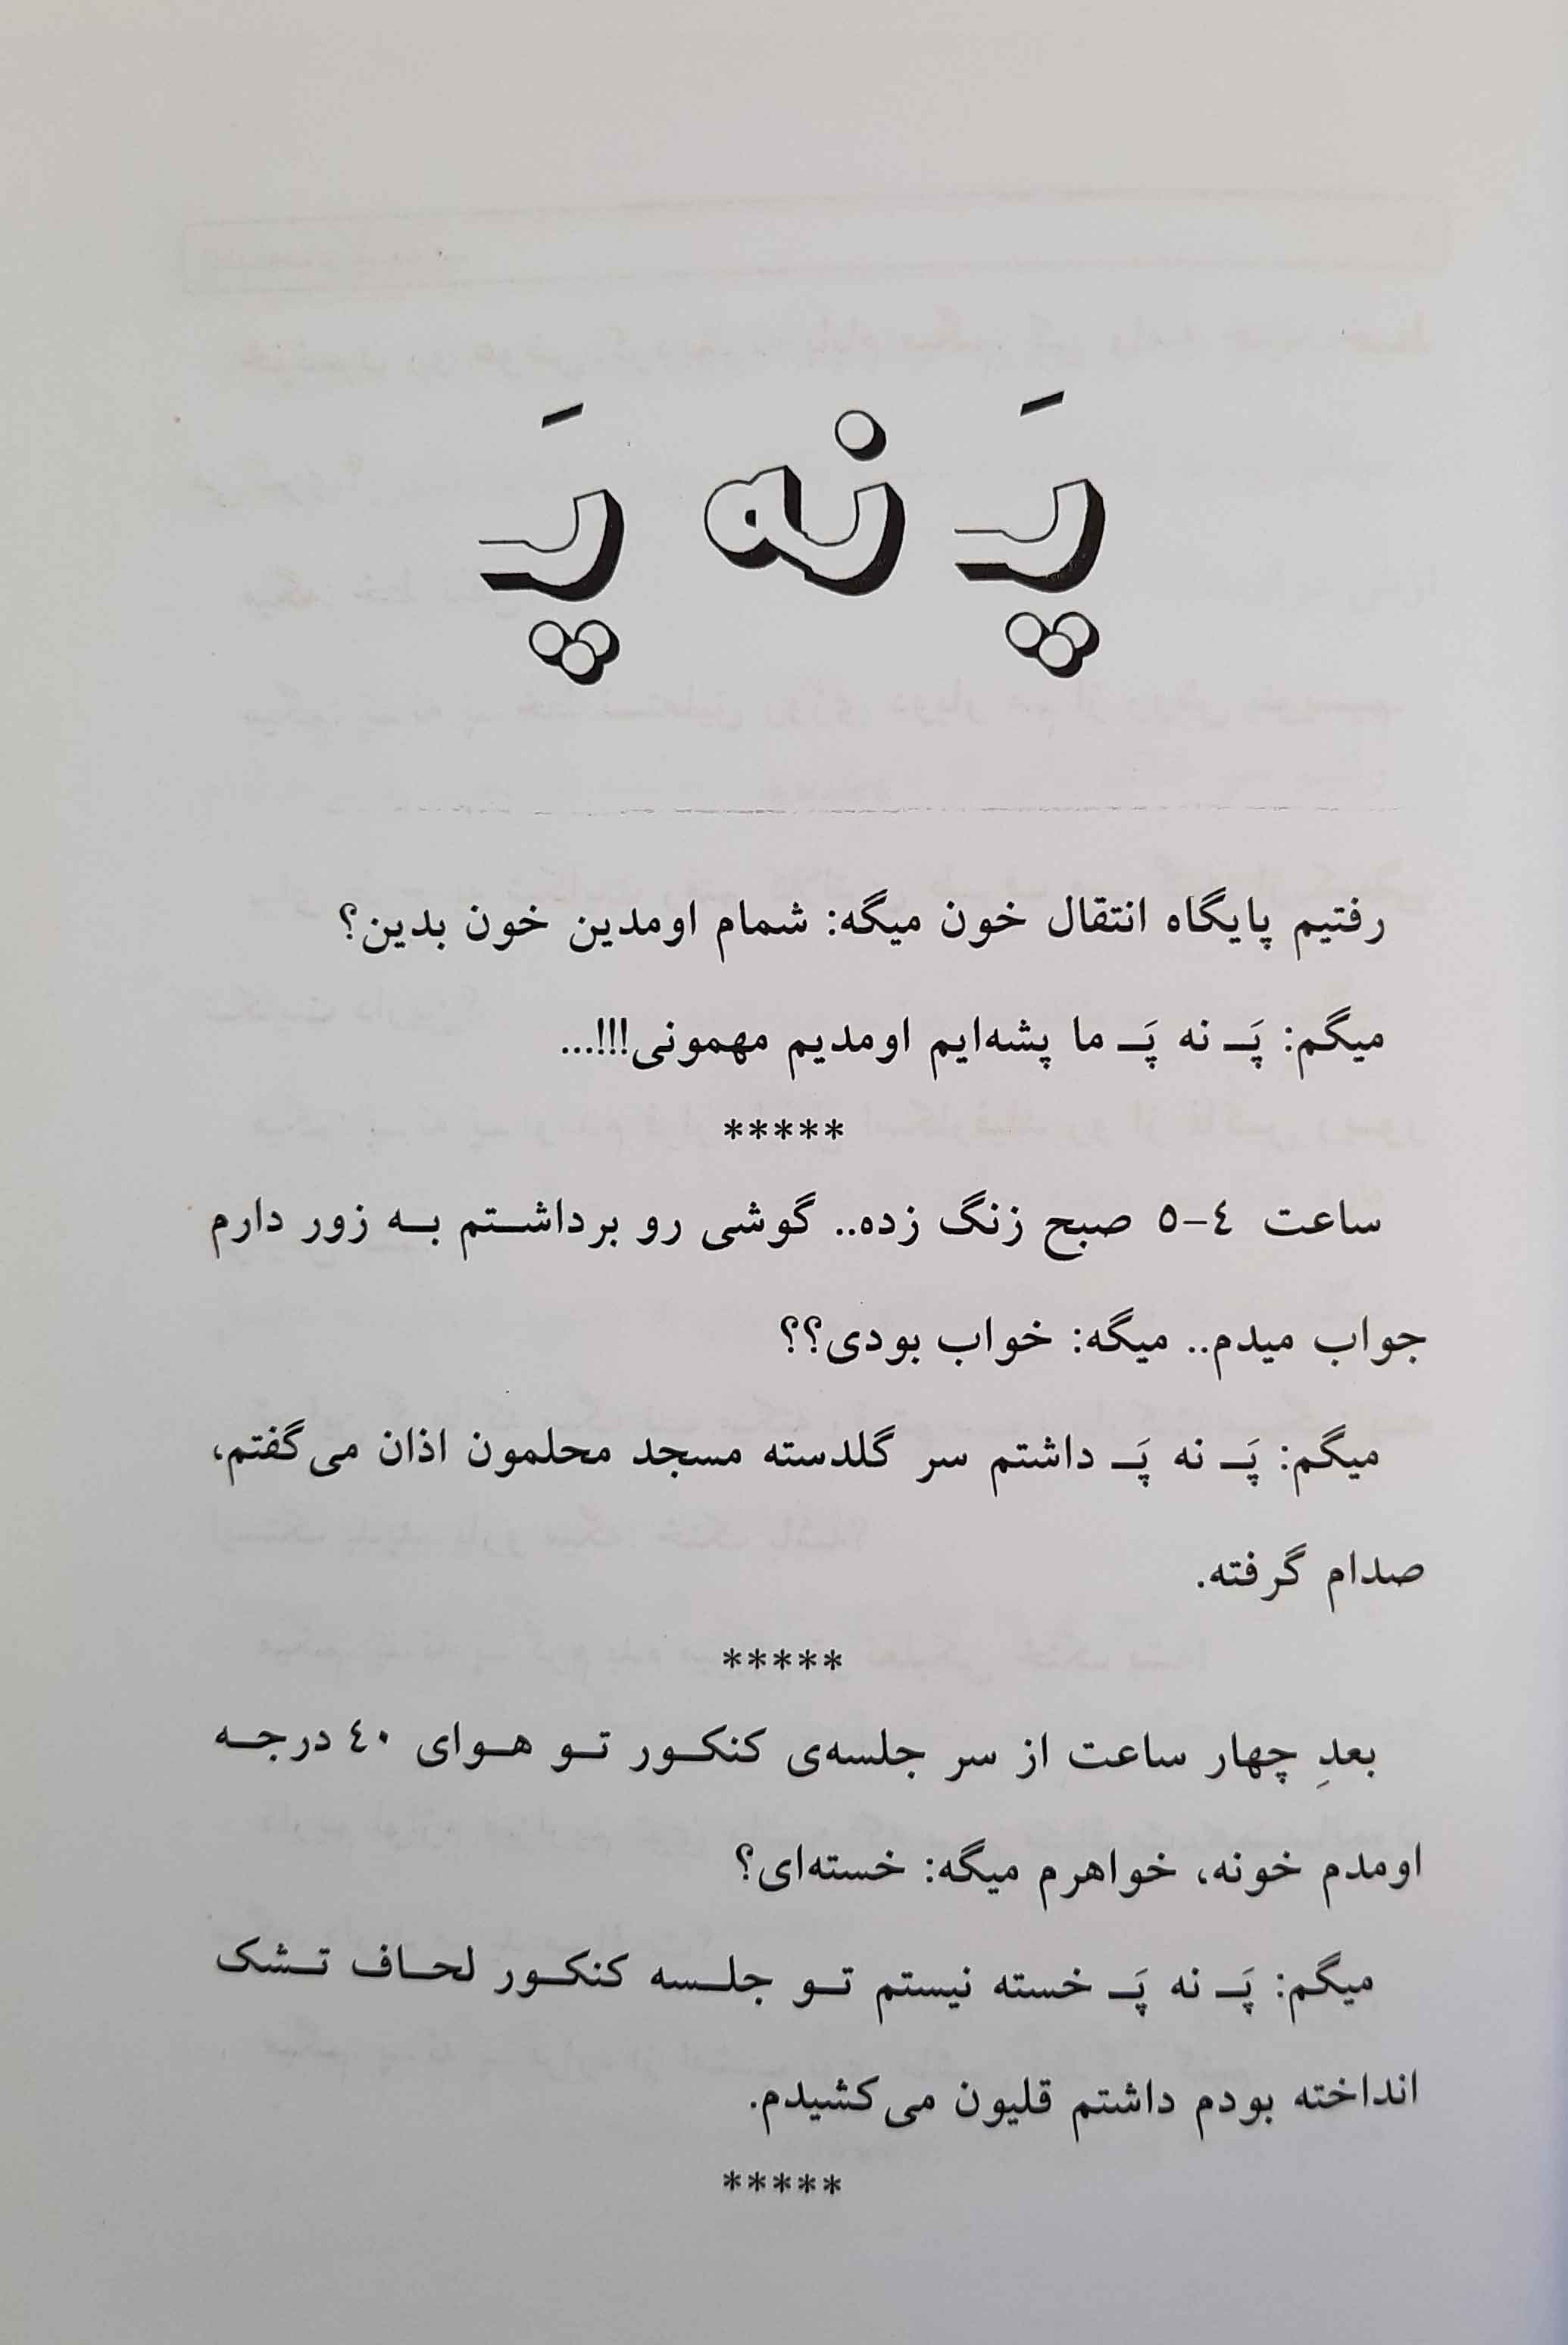 پَـ نه پَـ
رفتیم پایگاه انتقال خون میگه: شمام اومدین خون بدین؟
میگم: پَـ نه پَـ ما پشه‌ایم اومدیم مهمونی!!!...
*****
ساعت ٤-٥ صبح زنگ زده.. گوشی رو برداشـتم بـه زور دارم
جواب میدم.. میگه: خواب بودی؟؟
میگم: پَـ نه پَـ داشتم سر گلدسته مسجد محلمون اذان می‌گفتم،
صدام گرفته.
*****
بعدِ چهار ساعت از سر جلسه‌ی کنکـور تـو هـوای ٤٠ درجـه
اومدم خونه، خواهرم میگه: خسته‌ای؟
میگم: پَـ نه پَـ خسته نیستم تـو جلـسه کنکـور لحـاف تـشک
انداخته بودم داشتم قلیون می‌کشیدم.
*****